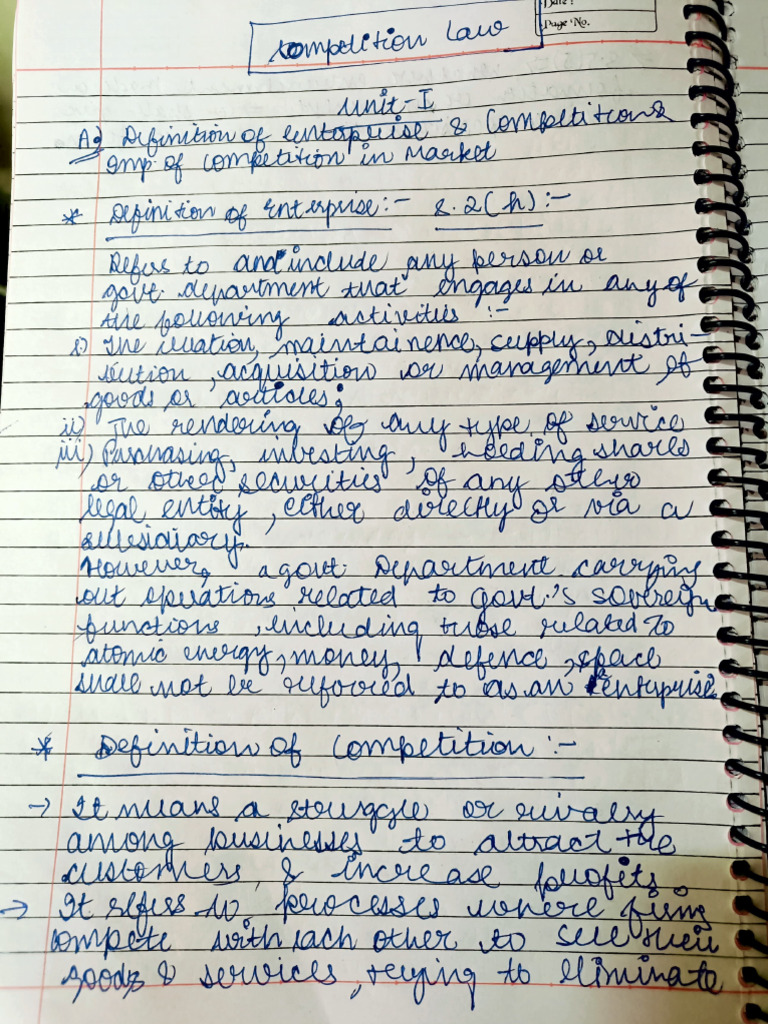 Date:
Page No.
Competition Law
Unit-I
A) Definition of enterprise & Competition &
Imp. of competition in Market
* Definition of Enterprise:- S.2(h):-
Refers to and include any person or
govt. department that engages in any of
the following activities :-
i) The creation, maintainence, supply, distri-
bution, acquisition or management of
goods or articles;
ii) The rendering of any type of service
iii) Purchasing, investing, holding shares
or other securities of any other
legal entity, either directly or via a
subsidiary.
However, a govt. Department carrying
out operations related to govt.'s sovereign
functions, including those related to
atomic energy, money, defence, space
shall not be referred to as an enterprise
* Definition of Competition :-
→ It means a struggle or rivalry
among businesses to attract the
customers, & increase profits.
→ It refers to processes where firms
compete with each other to sell their
goods & services, trying to eliminate